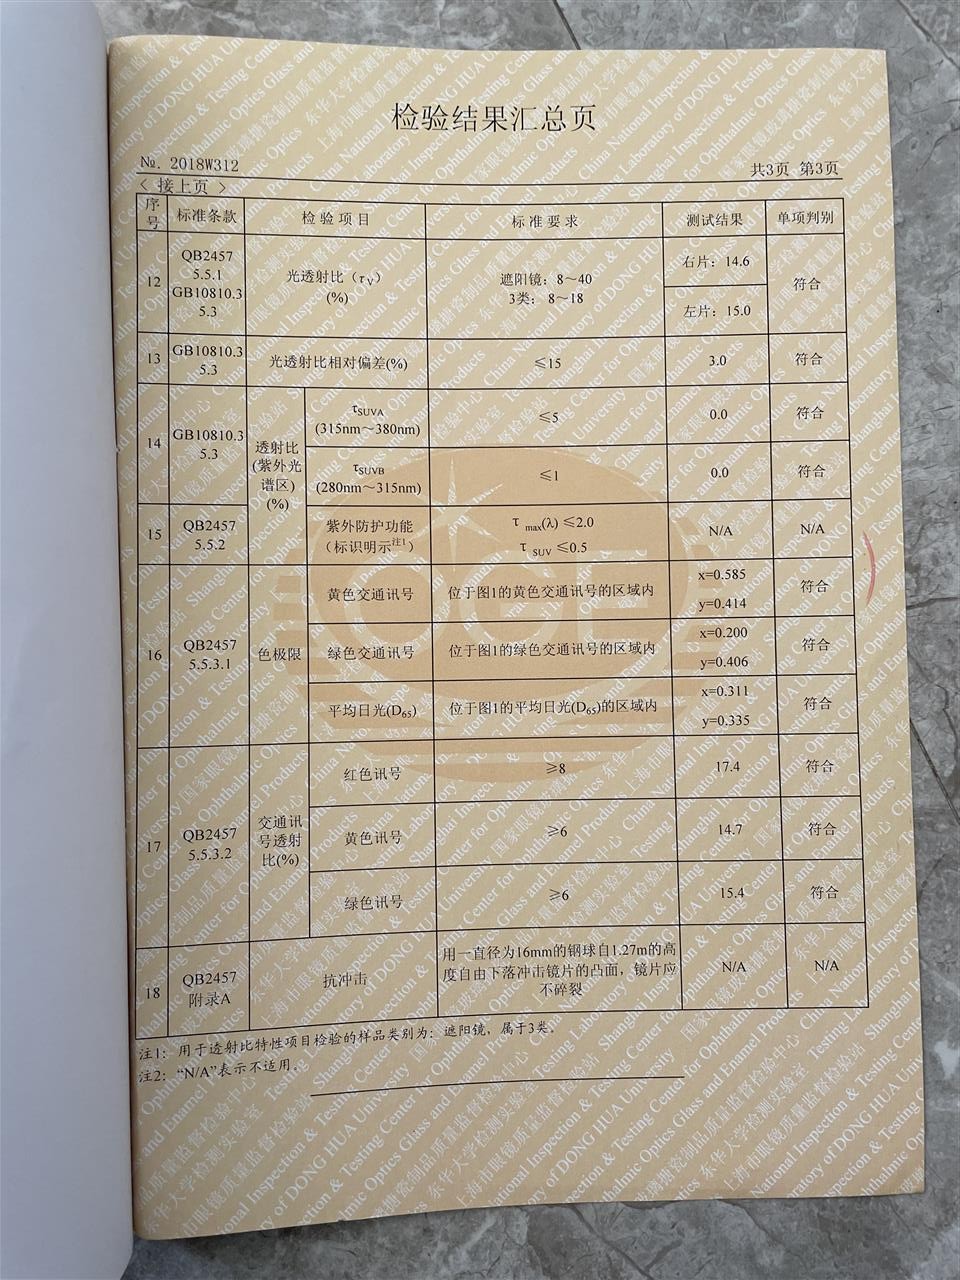 检验结果汇总页
№. 2018W312
共3页 第3页
< 接上页 >
序号 标准条款 检验项目 标准要求 测试结果 单项判别
12 QB2457 5.5.1 GB10810.3 5.3 光透射比（τV）(%) 遮阳镜：8～40 3类：8～18 右片：14.6 左片：15.0 符合
13 GB10810.3 5.3 光透射比相对偏差(%) ≤15 3.0 符合
14 GB10810.3 5.3 透射比(紫外光谱区)(%) τSUVA (315nm～380nm) ≤5 0.0 符合
τSUVB (280nm～315nm) ≤1 0.0 符合
15 QB2457 5.5.2 紫外防护功能（标识明示注1） τ max(λ) ≤2.0 τ SUV ≤0.5 N/A N/A
16 QB2457 5.5.3.1 色极限 黄色交通讯号 位于图1的黄色交通讯号的区域内 x=0.585 y=0.414 符合
绿色交通讯号 位于图1的绿色交通讯号的区域内 x=0.200 y=0.406 符合
平均日光(D65) 位于图1的平均日光(D65)的区域内 x=0.311 y=0.335 符合
17 QB2457 5.5.3.2 交通讯号透射比(%) 红色讯号 ≥8 17.4 符合
黄色讯号 ≥6 14.7 符合
绿色讯号 ≥6 15.4 符合
18 QB2457 附录A 抗冲击 用一直径为16mm的钢球自1.27m的高度自由下落冲击镜片的凸面，镜片应不碎裂 N/A N/A
注1：用于透射比特性项目检验的样品类别为：遮阳镜，属于3类。
注2：“N/A”表示不适用。